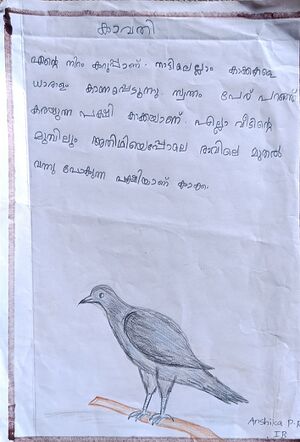 കാവതി
എന്റെ നിറം കറുപ്പാണ്. നാട്ടിലെല്ലാം കാക്കകളെ
ധാരാളം കാണപ്പെടുന്നു. സ്വന്തം പേര് പറഞ്ഞ്
കരയുന്ന പക്ഷി കാക്കയാണ്. എല്ലാ വീടിന്റെ
മുമ്പിലും അതിഥിയെപ്പോലെ രാവിലെ മുതൽ
വന്നു പോകുന്ന പക്ഷിയാണ് കാക്ക.
Anshika P.R
I B